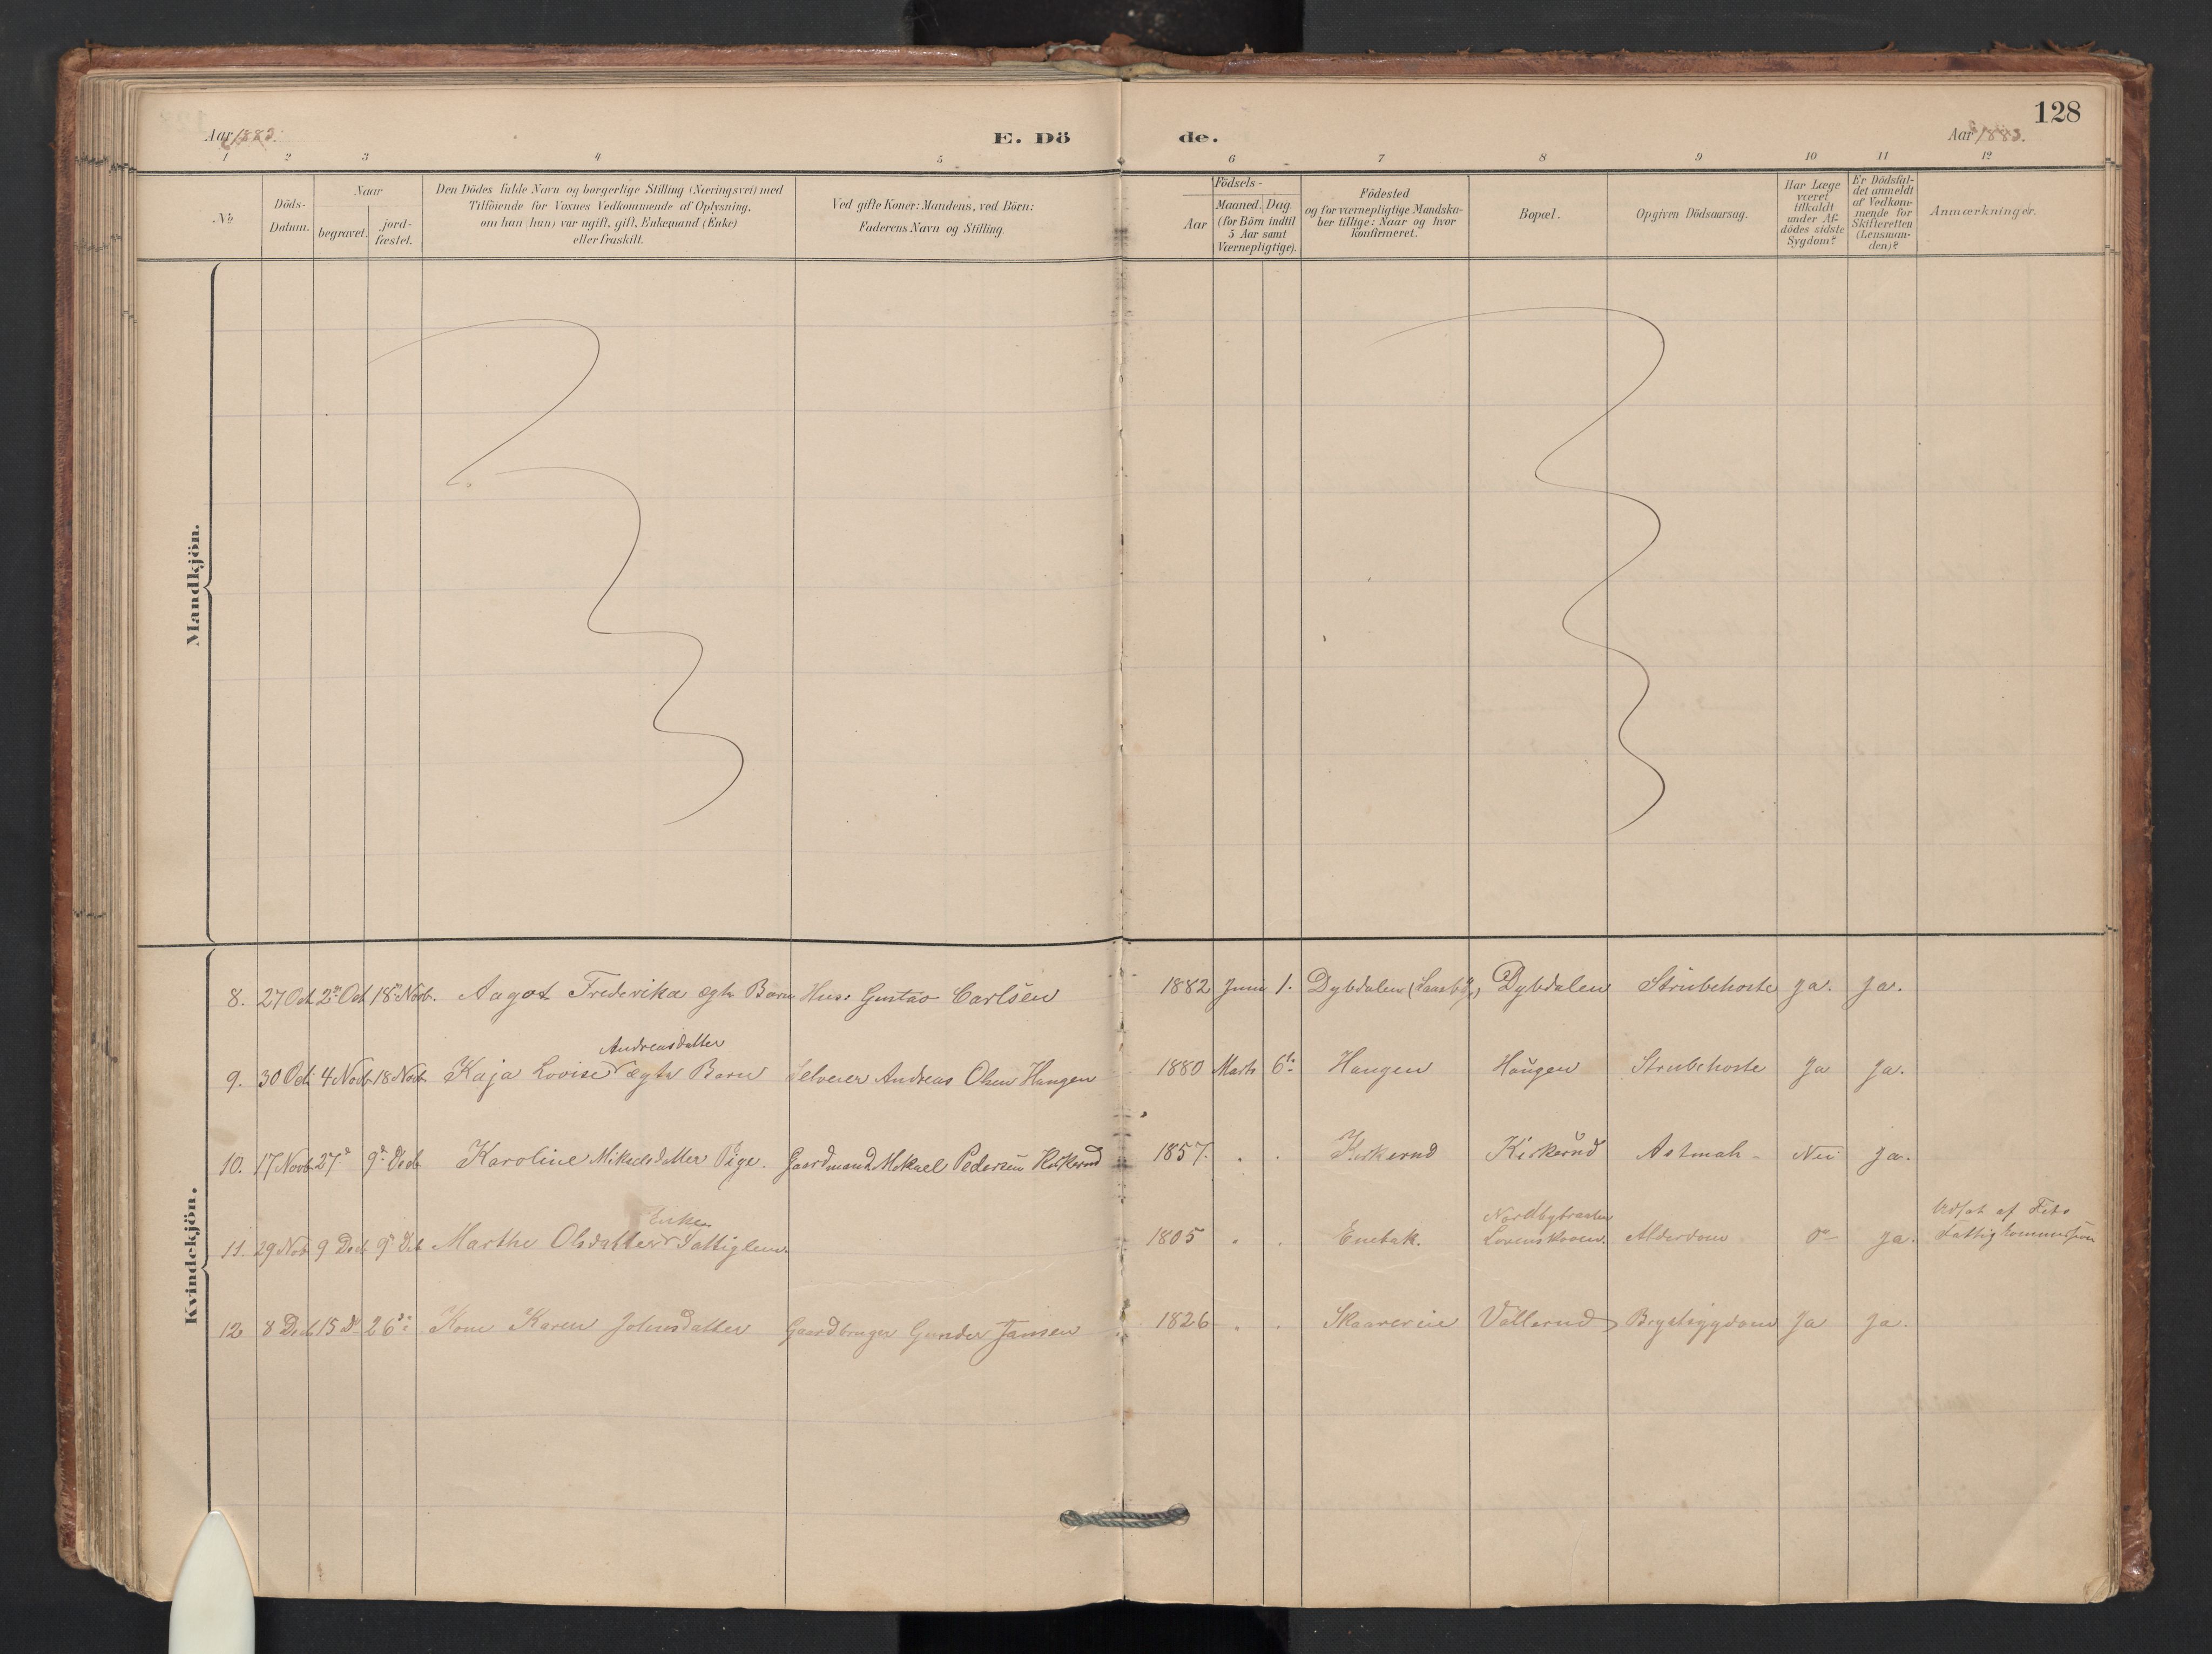 128
Aar 1883.
E. Dö
de.
Aar 1883.
1 2 3 4 5 6 7 8 9 10 11 12
№
Döds-
Datum.
Naar
begravet.
jord-
fæstet.
Den Dödes fulde Navn og borgerlige Stilling (Næringsvei) med
Tilföiende for Voxnes Vedkommende af Oplysning,
om han (hun) var ugift, gift, Enkemand (Enke)
eller fraskilt.
Ved gifte Koner: Mandens, ved Börn:
Faderens Navn og Stilling.
Födsels-
Aar
Maaned. Dag.
(for Börn indtil
5 Aar samt
Værnepligtige).
Födested
og for værnepligtige Mandska-
ber tillige: Naar og hvor
konfirmeret.
Bopæl.
Opgiven Dödsaarsag.
Har Læge
været
tilkaldt
under Af-
dödes sidste
Sygdom?
Er Dödsfal-
det anmeldt
af Vedkom-
mende for
Skifteretten
(Lensman-
den)?
Anmærkninger.
Mandkjön.
Kvindekjön.
8. 27 Oct 2 Oct 18 Novb. Aagot Frederika ægte Barn Hus: Gustav Carlsen 1882 Juni 1. Dybdalen Dybdalen Strubehoste Ja. Ja.
Andreasdatter
9. 30 Oct 4 Novb 18 Novb Kaja Lovise ægte Barn Selveier Andreas Olsen Haugen 1880 Marts 6 Haugen Haugen Strubehoste Ja Ja.
10. 17 Novb 27 9 Decb Karoline Mikelsdatter Pige. Gaardmand Mikael Pedersen Kirkerud 1857. Kirkerud Kirkerud Astmah - Nei Ja.
Enke
11. 29 Nov 9 Dec 9 Dec Marthe Olsdatter Fattiglem 1805 Enebak. Nordbybraaten
Lorenskoven. Alderdom Do Ja. Udsat af Fets
Fattigkommission
12 8 Dec 15 D 26 Kone Karen Johnsdatter Gaardbruger Gunder Jansen 1826 Skaarereie Vallerud Brystsygdom Ja Ja.